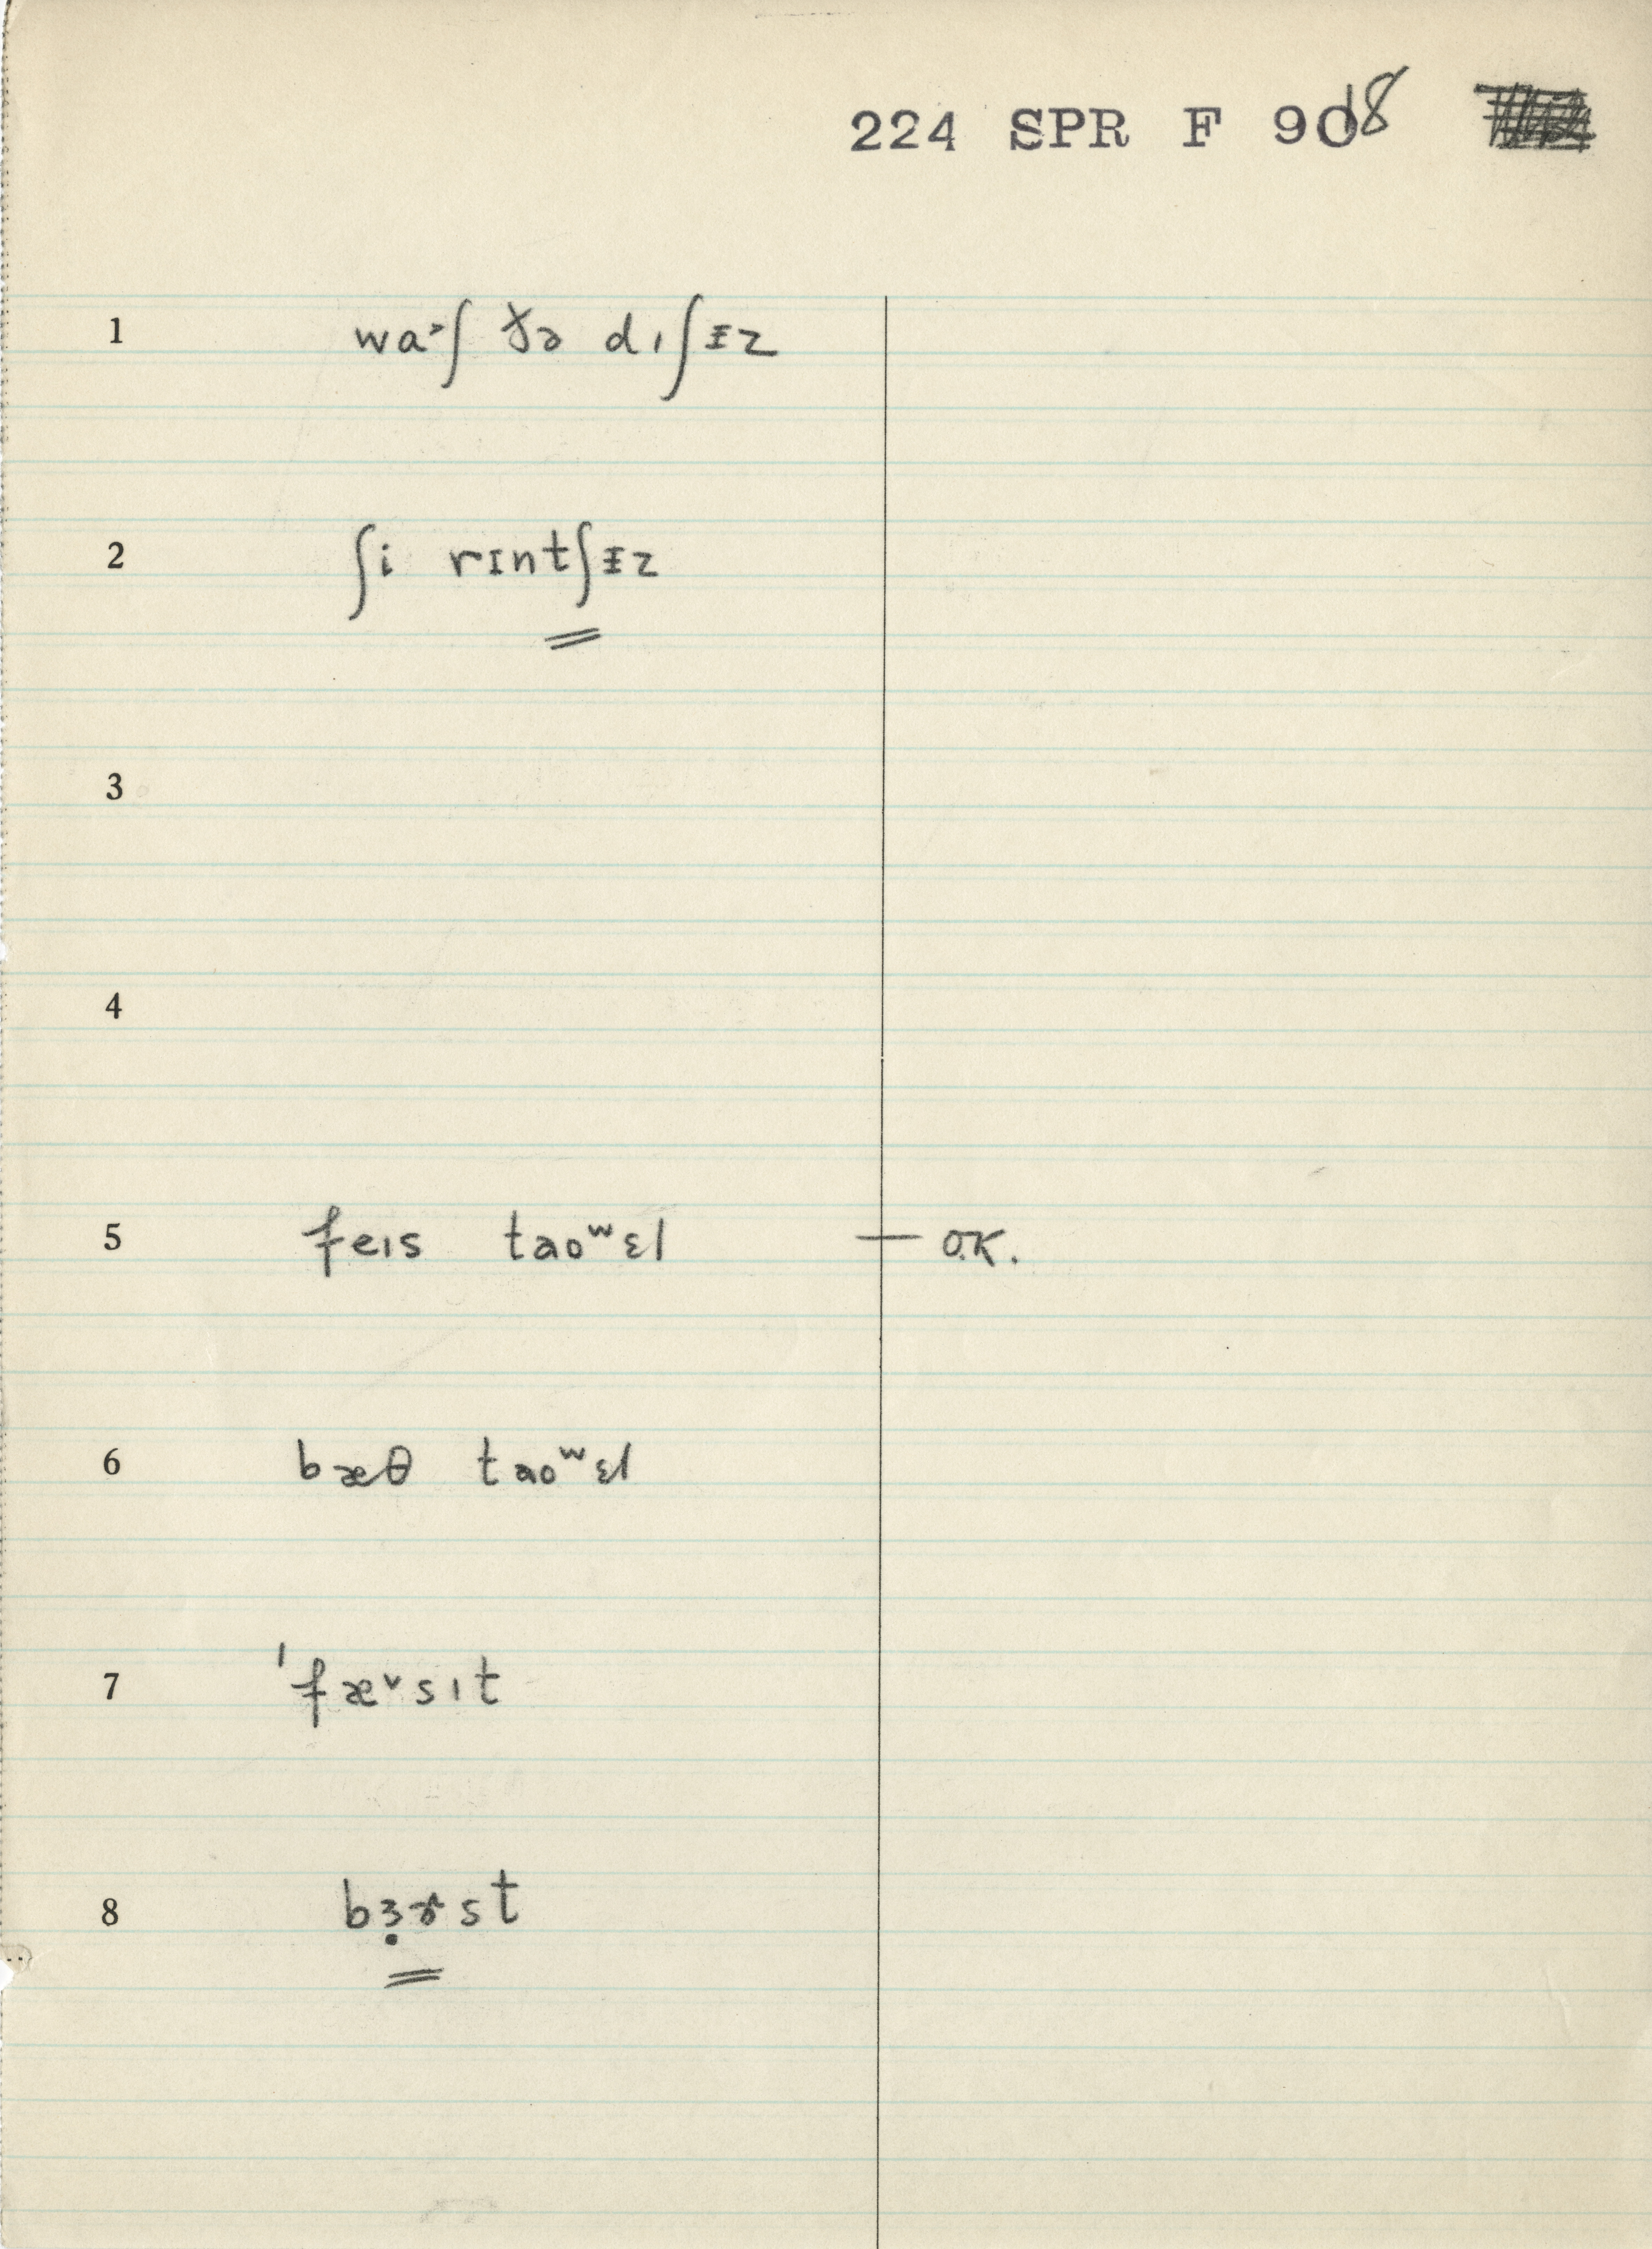 224 SPR F 9018
1 wa˃ʃ ðə dɪʃᵻz
2 ʃi rɪntʃᵻz
3
4
5 feɪs taoʷɛl — O.K.
6 bæθ taoʷɛl
7 ˈfæ˅sɪt
8 bɜ̣ɚst